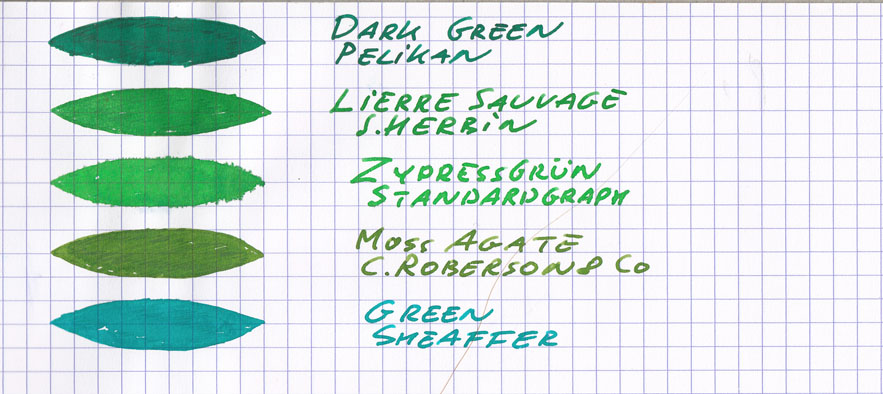 DARK GREEN
PELIKAN
LIERRE SAUVAGE
J.HERBIN
ZYPRESSGRÜN
STANDARDGRAPH
MOSS AGATE
C.ROBERSON & CO
GREEN
SHEAFFER